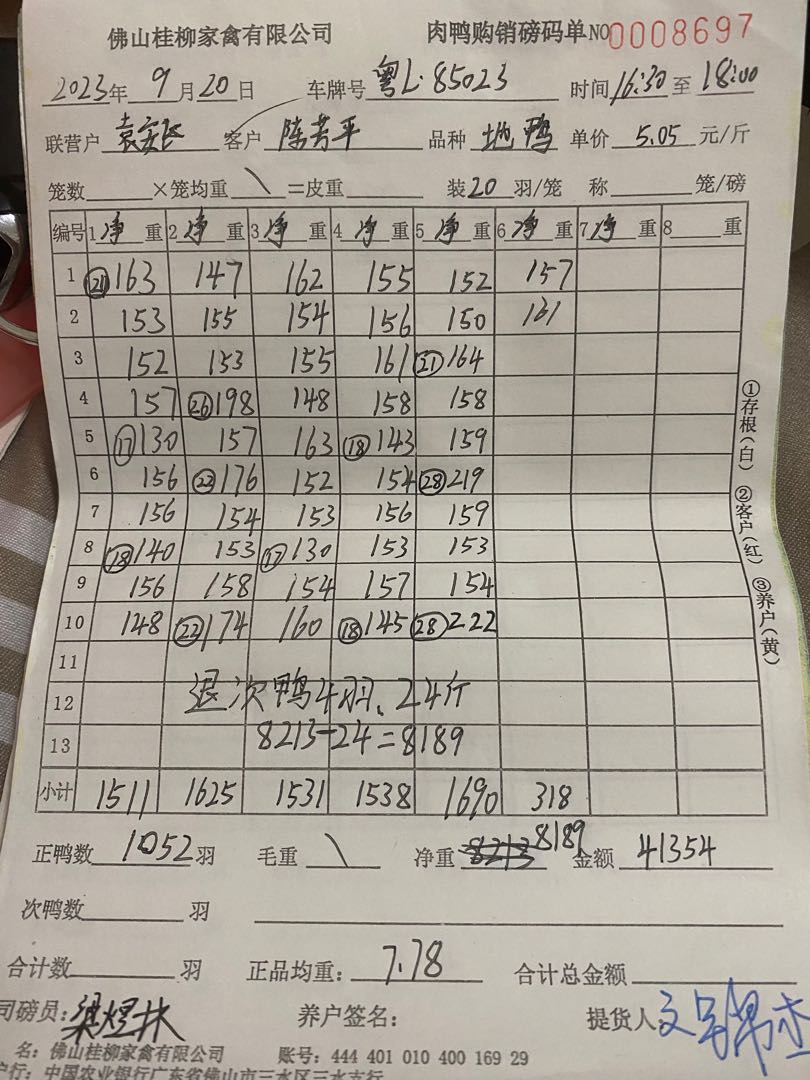 佛山桂柳家禽有限公司 肉鸭购销磅码单 NO 0008697
2023年 9月20日 车牌号 粤L·85023 时间16:30至18:00
联营户 客户 陈芳平 品种 地鸭 单价 5.05 元/斤
笼数 ×笼均重 \ =皮重 装20羽/笼 称 笼/磅
编号 1净重 2净重 3净重 4净重 5净重 6净重 7净重 8 重
1 ㉑163 147 162 155 152 157
2 153 155 154 156 150 161
3 152 153 155 161 ㉑164
4 157 ㉖198 148 158 158
5 ⑰130 157 163 ⑱143 159
6 156 ㉒176 152 154 ㉘219
7 156 154 153 156 159
8 ⑱140 153 ⑰130 153 153
9 156 158 154 157 154
10 148 ㉒174 160 ⑱145 ㉘222
11
12 退次鸭4羽、24斤
13 8213-24=8189
小计 1511 1625 1531 1538 1690 318
①存根(白) ②客户(红) ③养户(黄)
正鸭数 1052 羽 毛重 \ 净重 8213 8189 金额 41354
次鸭数 羽
合计数 羽 正品均重: 7.78 合计总金额
司磅员: 梁煜林 养户签名: 提货人
名: 佛山桂柳家禽有限公司 账号: 444 401 010 400 169 29
户行: 中国农业银行广东省佛山市三水区三水支行